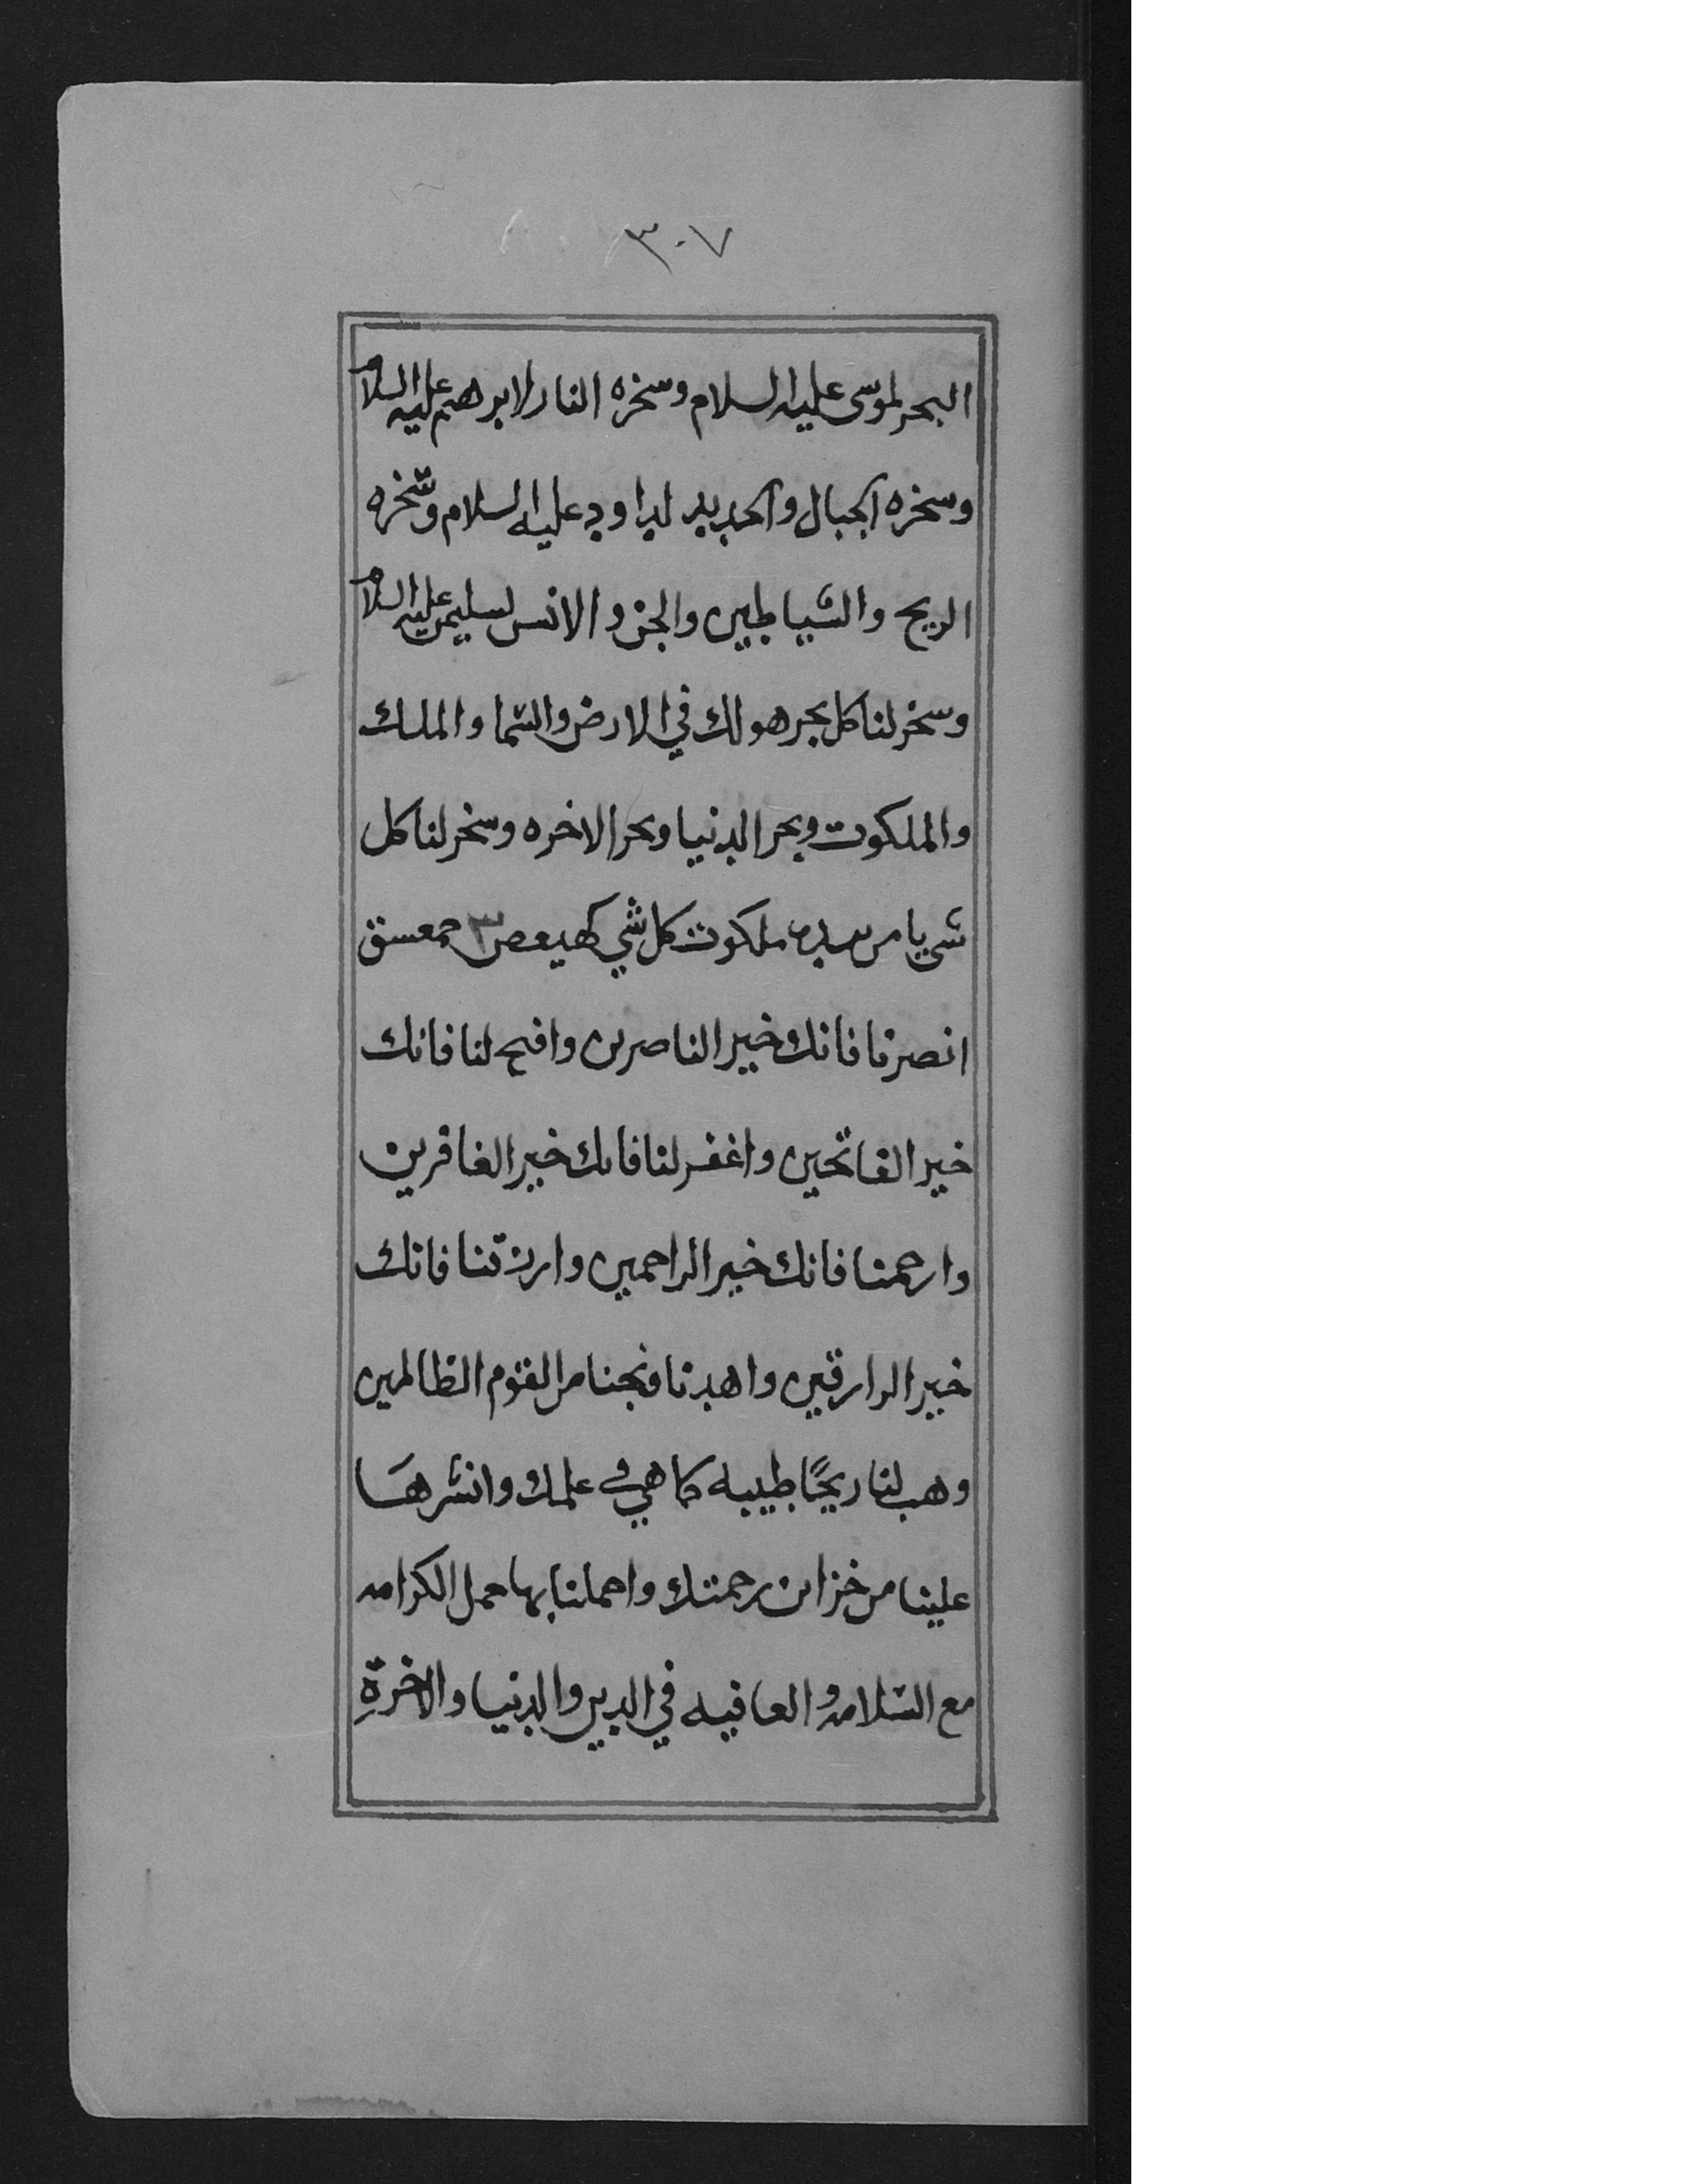 ٣٠٧
البحر لموسى عليه السلام وسخره النار لابرهيم عليه السلام
وسخره الجبال والحديد لداود عليه السلام وسّخره
الريح والشياطين والجن والانس لسليمن عليه السلام
وسخر لنا كل بحر هو لك في الارض والسّما والملك
والملكوت وبحر الدنيا وبحر الاخره وسخر لنا كل
شي يا من بيده ملكوت كل شي كهيعص ٣ حمعسق
انصرنا فانك خير الناصرين وافتح لنا فانك
خير الفاتحين واغفر لنا فانك خير الغافرين
وارحمنا فانك خير الراحمين وارزقنا فانك
خير الرازقين واهدنا ونجنا من القوم الظالمين
وهب لنا ريحًا طيبه كما هي في علمك وانشرها
علينا من خزاين رحمتك واحملنا بها حمل الكرامه
مع السّلامه والعافيه في الدين والدنيا والاخرةِ